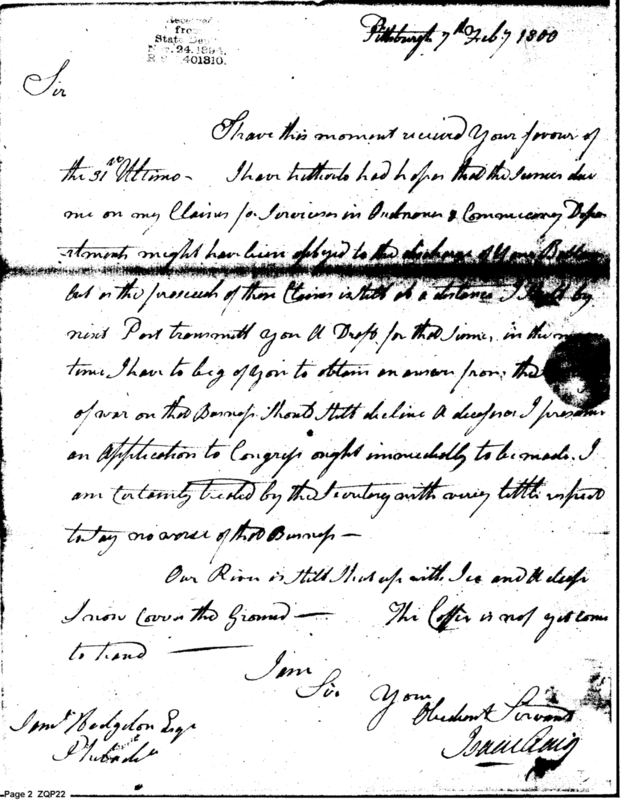 Received
from
State Dept
Nov. 24. 1894.
R. 401310.
Pittsburgh 7th Feby 1800
Sir
I have this moment received Your favour of
the 31st Ultimo – I have hitherto had hopes that the Sumes due
me on my Claims for Services in Ordnance & Commissary Depa
rtments might have been applyed to the discharge of Your
but as the proceeds of those Claims is still at a distance I by
next Post transmitt you a Draft for that Sume, in the
time I have to beg of you to obtain an answer from the
of war on that Business Should Still decline a I presume
an Application to Congress ought immediedly to be made. I
am Certainly treated by the Secretary with verry little respect
to Say no worse of that Business —
Our River is still Shut up with Ice and a deep
Snow Covers the Ground — The Coffee is not yet come
to hand —
I am
Sir Your
Obedient Servant
Isaac Craig
Saml Hodgdon Esqr
Philada
Page 2 ZQP22